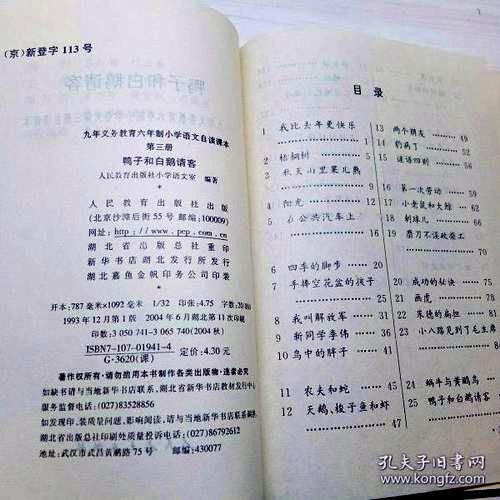 (京)新登字 113 号
九年义务教育六年制小学语文自读课本
第三册
鸭子和白鹅请客
人民教育出版社小学语文室 编著
人民教育出版社出版
(北京沙滩后街 55 号 邮编:100009)
网址:http://www.pep.com.cn
湖北省出版总社重印
新华书店湖北发行所发行
湖北嘉鱼金帆印务公司印装
开本:787 毫米×1092 毫米 1/32 印张:4.75
1993 年 12 月第 1 版 2004 年 6 月湖北第 11 次印刷
印数:3 050 741-3 065 740(2004 秋)
ISBN7-107-01941-4
G·3620(课) 定价:4.30 元
著作权所有·请勿擅用本书制作各类出版物·违者必究
如缺书请与当地新华书店联系,湖北省新华书店教材发行部
电话:(027)83528856
如发现印、装质量问题,影响阅读,请与当地新华书店联系,
湖北省出版总社印刷处质量投诉电话:(027)86792612
地址:武汉市武昌黄鹂路 75 号 邮编:430077
目录
1 我比去年更快乐
2 梧桐树
3 秋天山里果儿熟
4 阳光
5 在公共汽车上
6 四季的脚步 16
7 手捧空花盆的孩子 20
8 我叫解放军 25
9 新同学李伟 30
10 鸟中的胖子 35
11 农夫和蛇 41
12 天鹅、梭子鱼和虾 47
13 两个朋友 49
14 豹病了 52
15 谜语四则 56
16 第一次劳动
17 小老鼠和大鲸
18 射球儿
19 磨刀不误砍柴工
20 成功的秘诀
21 画虎
22 朱德的扁担
23 小八路见到了毛主席
24 蜗牛与黄鹂鸟
25 鸭子和白鹅请客
孔夫子旧书网
www.kongfz.com